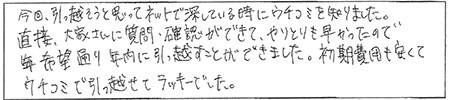 今回、引っ越そうと思ってネットで探している時にウチコミを知りました。
直接、大家さんに質問・確認ができて、やりとりも早かったので
無事希望通り年内に引っ越すことができました。初期費用も安くて
ウチコミで引っ越せてラッキーでした。